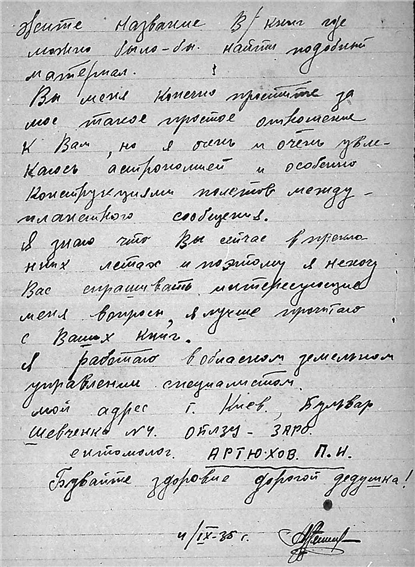 жите название В/ книг где
можно было-бы найти подобный
материал.
Вы меня конечно простите за
мое такое простое отношение
к Вам, но я очень и очень увле-
каюсь астрономией и особенно
конструкциями полетов между-
планетного сообщения.
Я знаю что Вы сейчас в прекло
нных летах и поэтому я нехочу
Вас спрашивать интересующие
меня вопросы, я лучше прочитаю
с Ваших книг.
Я работаю в обласном земельном
управлении специалистом.
мой адрес г. Киев, Бульвар
Шевченко №4. ОПЛЗУ - ЗАРО.
ентомолог АРТЮХОВ П.И.
Бувайте здоровие дорогой дедушка!
4/IX-35 г.